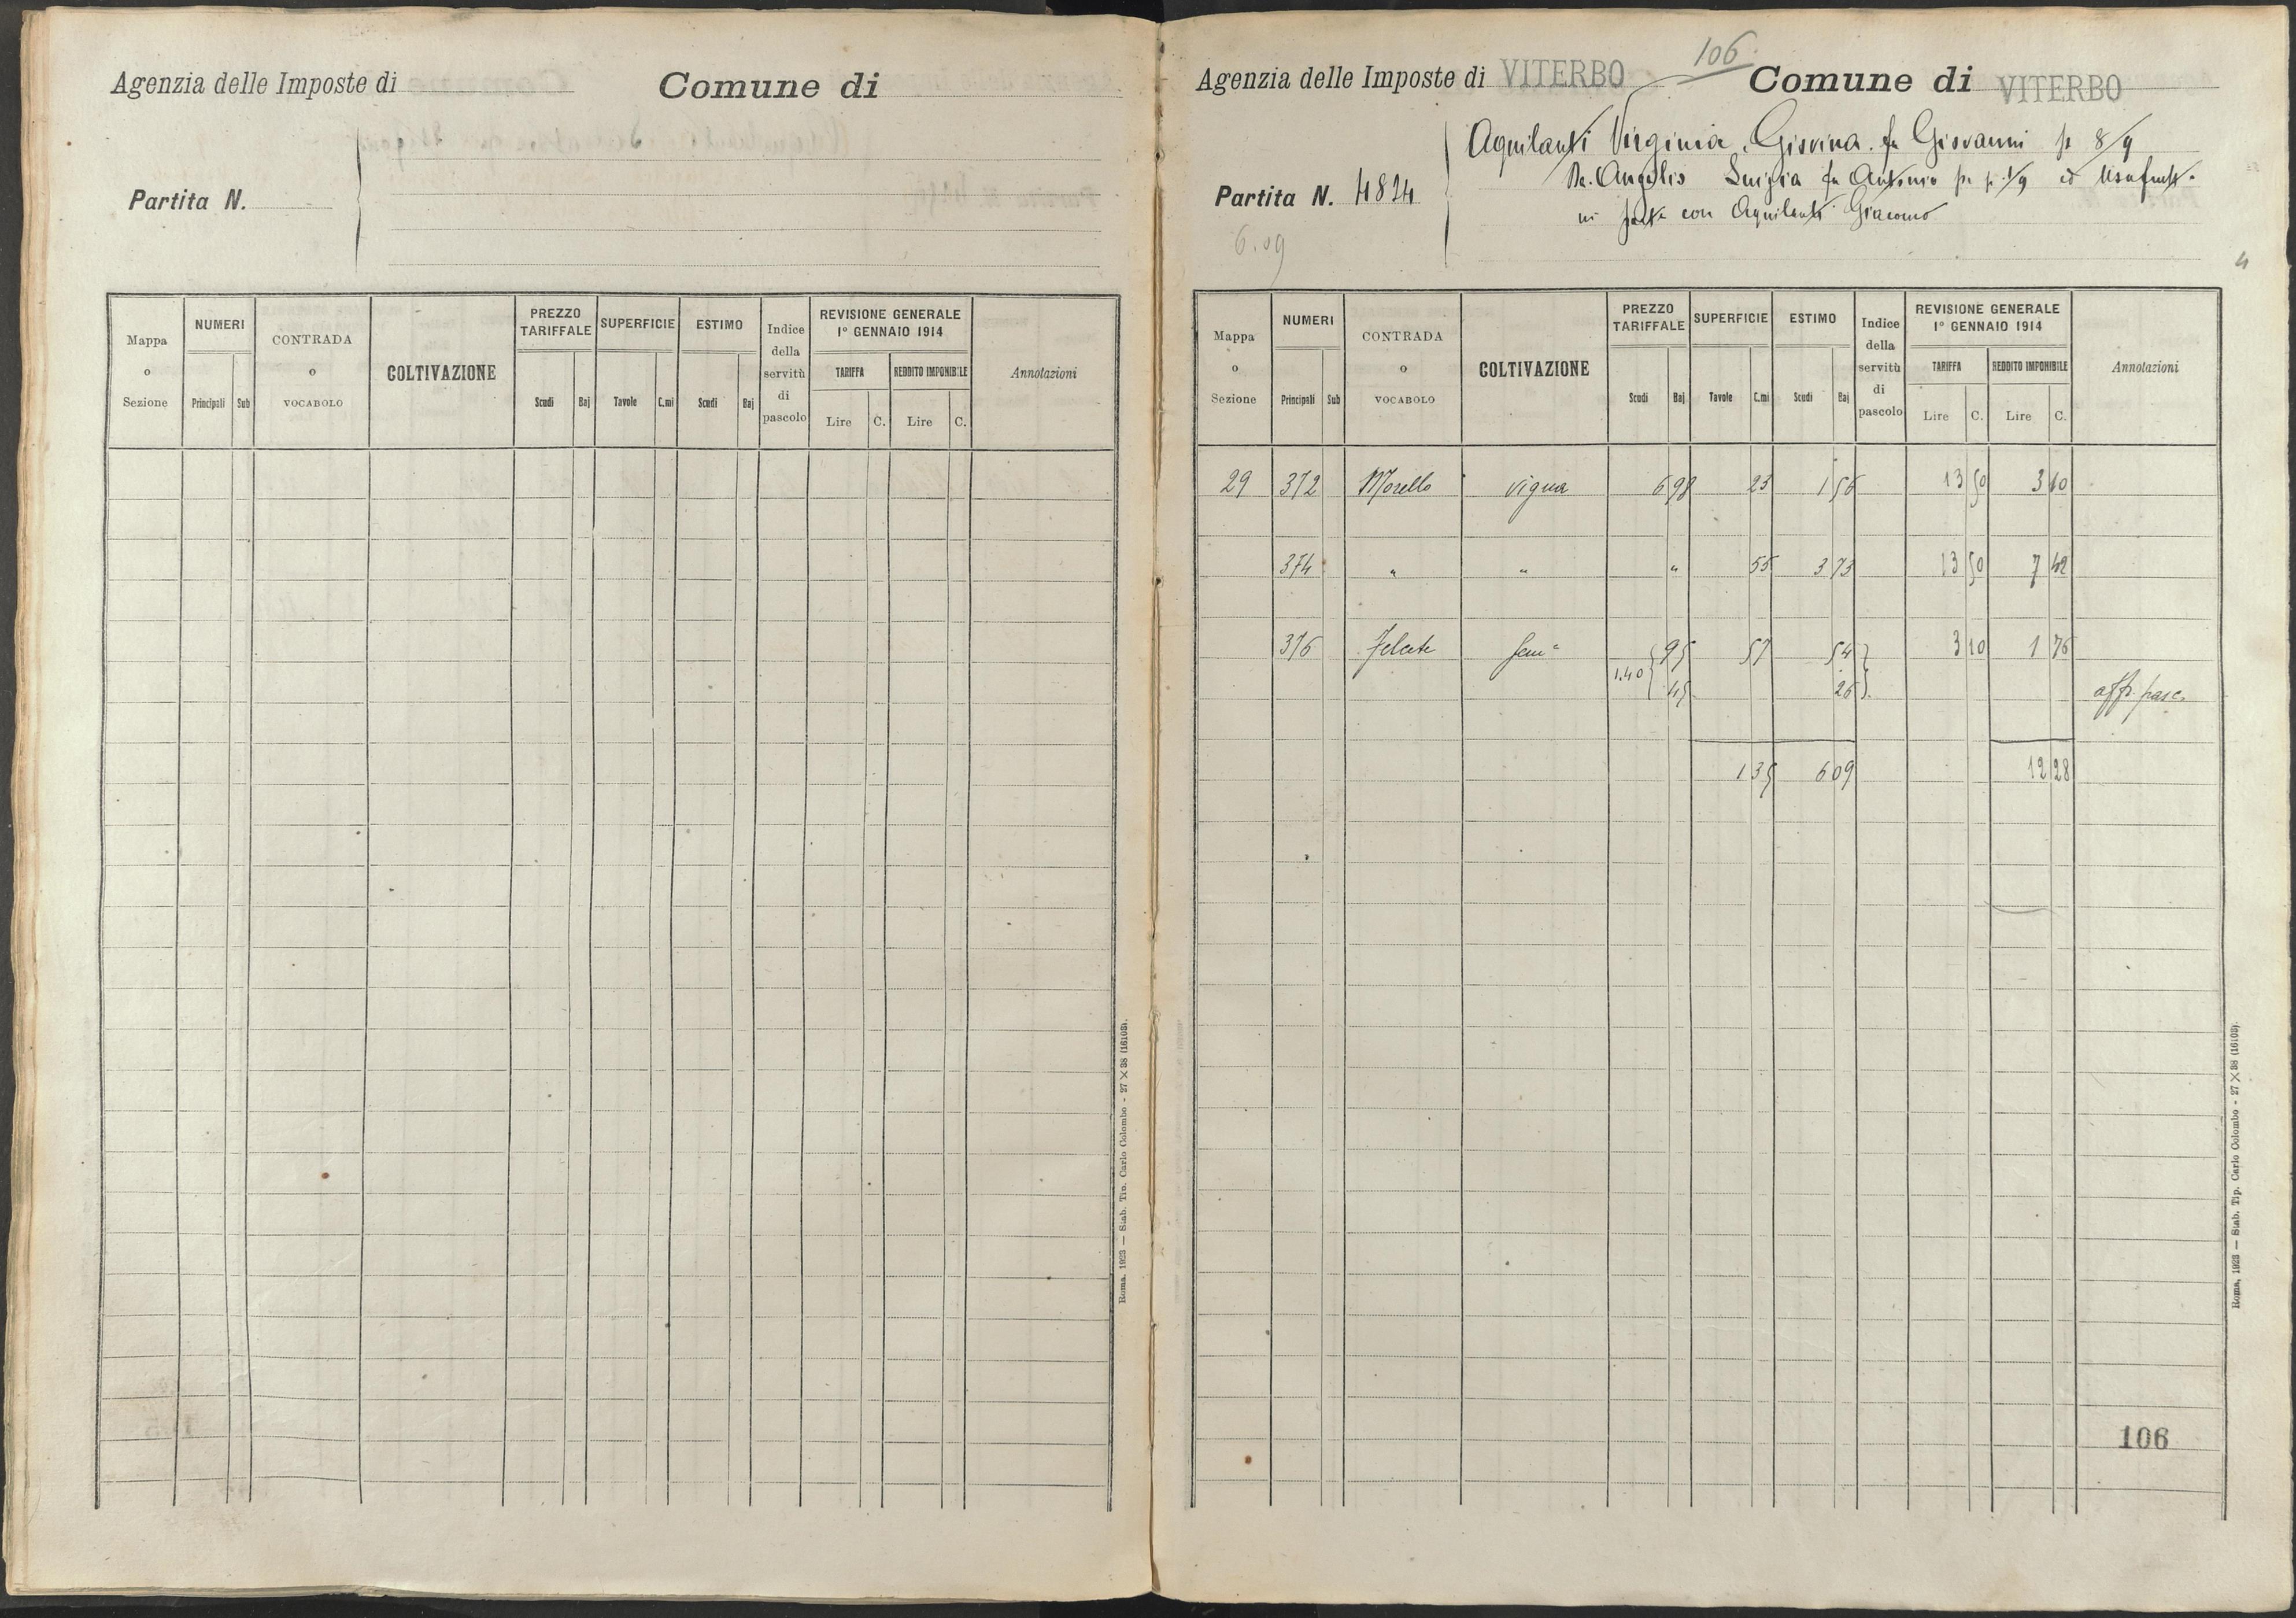 Agenzia delle Imposte di
Comune di
Partita N.
Mappa o Sezione
NUMERI
Principali Sub
CONTRADA o VOCABOLO
COLTIVAZIONE
PREZZO TARIFFALE
Scudi Baj
SUPERFICIE
Tavole C.mi
ESTIMO
Scudi Baj
Indice della servitù di pascolo
REVISIONE GENERALE
1° GENNAIO 1914
TARIFFA REDDITO IMPONIBILE
Lire C. Lire C.
Annotazioni
Roma, 1923 — Stab. Tip. Carlo Colombo - 27 X 38 (16103).
106
Agenzia delle Imposte di VITERBO
Comune di VITERBO
Aquilanti Virginia, Giovina fu Giovanni p 8/9
De Angelis Luigia fu Antonio p. p. 1/9 ed Usufrutt.
in parte con Aquilanti Giacomo
Partita N. 4824
6.09
4
Mappa o Sezione
NUMERI
Principali Sub
CONTRADA o VOCABOLO
COLTIVAZIONE
PREZZO TARIFFALE
Scudi Baj
SUPERFICIE
Tavole C.mi
ESTIMO
Scudi Baj
Indice della servitù di pascolo
REVISIONE GENERALE
1° GENNAIO 1914
TARIFFA REDDITO IMPONIBILE
Lire C. Lire C.
Annotazioni
29 372 Morello vigna 6 98 23 1 56 13 50 3 10
374 " " " 55 3 73 13 50 7 42
376 Sem 95 57 54 3 10 1 76
1.40 45 26 aff. pasc.
1 35 6 09 12 28
106
Roma, 1923 — Stab. Tip. Carlo Colombo - 27 X 38 (16103).